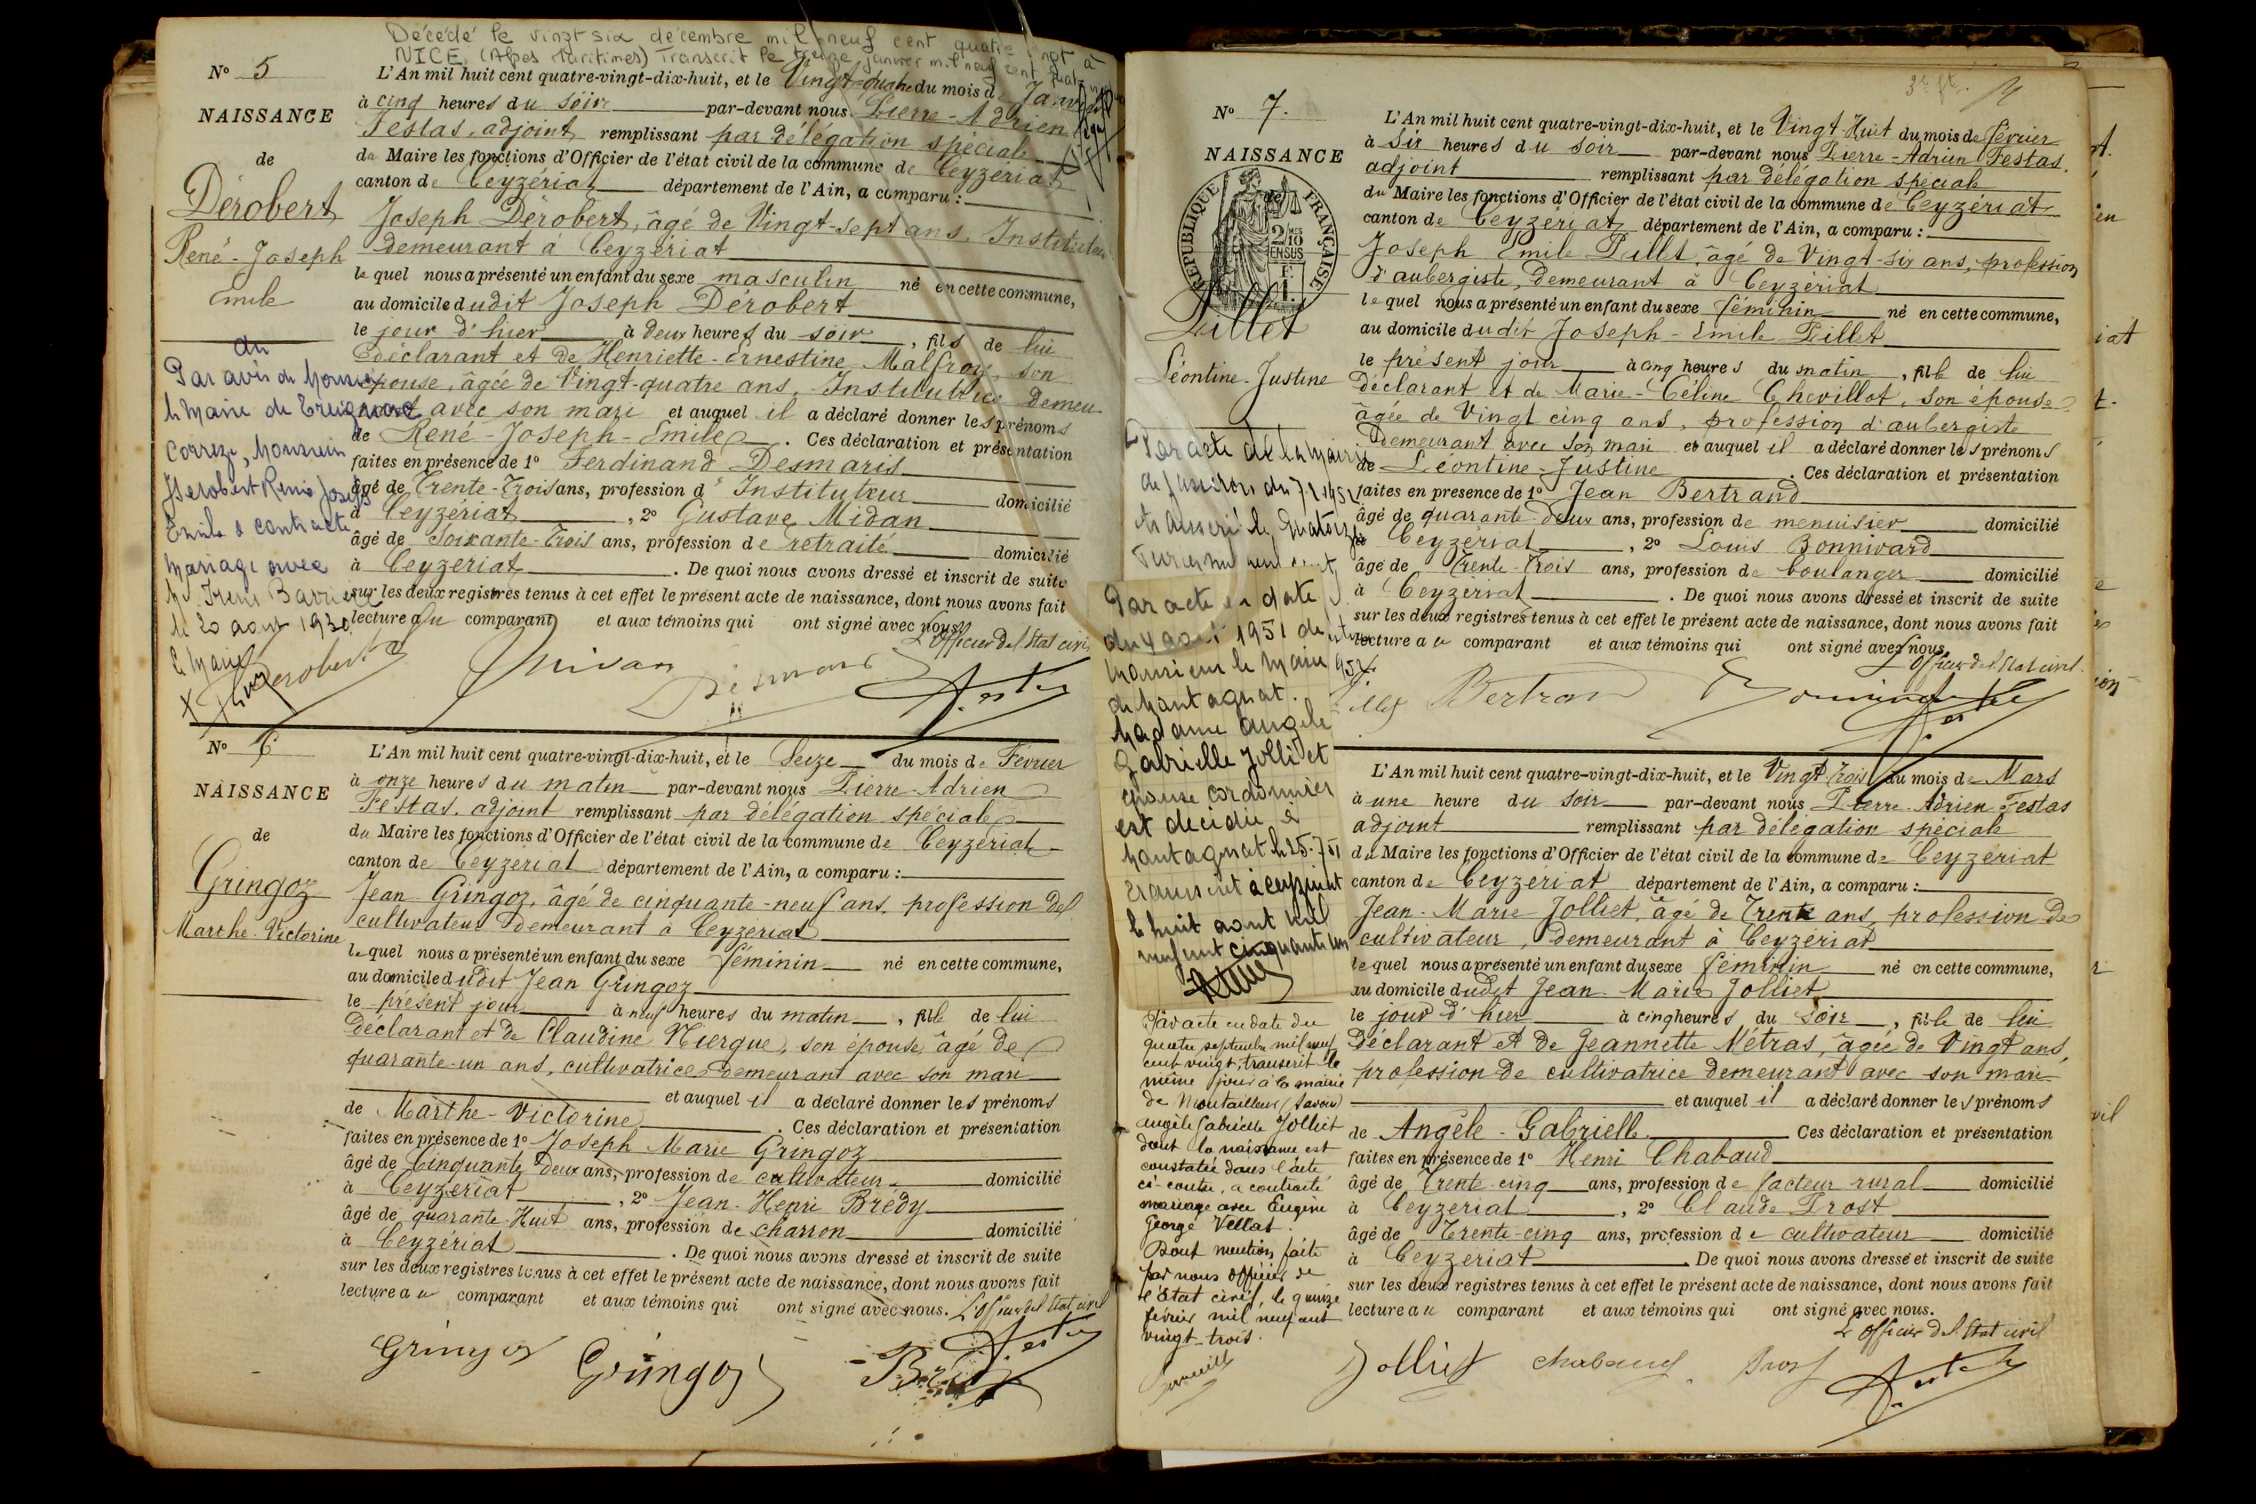 Décédé le vingt six décembre mil neuf cent quatre vingt à
NICE (Alpes Maritimes) Transcrit le treize janvier mil neuf cent
No 5
NAISSANCE
de
Dérobert
René-Joseph
Emile
L'An mil huit cent quatre-vingt-dix-huit, et le Vingt-quatre du mois de Janvier
à cinq heures du soir par-devant nous Pierre-Adrien
Festas, adjoint remplissant par délégation spéciale
du Maire les fonctions d'Officier de l'état civil de la commune de Ceyzériat
canton de Ceyzériat département de l'Ain, a comparu :
Joseph Dérobert, âgé de Vingt-sept ans, Instituteur
demeurant à Ceyzériat
lequel nous a présenté un enfant du sexe masculin né en cette commune,
au domicile dudit Joseph Dérobert
le jour d'hier à deux heures du soir, fils de lui
déclarant et de Henriette-Ernestine Malfroy, son
épouse, âgée de Vingt-quatre ans, Institutrice demeu-
rant avec son mari et auquel il a déclaré donner les prénoms
de René-Joseph-Emile. Ces déclaration et présentation
faites en présence de 1o Ferdinand Desmaris
âgé de Trente-Trois ans, profession d'Instituteur domicilié
à Ceyzériat, 2o Gustave Midan
âgé de Soixante-Trois ans, profession de retraité domicilié
à Ceyzériat. De quoi nous avons dressé et inscrit de suite
sur les deux registres tenus à cet effet le présent acte de naissance, dont nous avons fait
lecture au comparant et aux témoins qui ont signé avec nous.
L'Officier de l'Etat civil
Par avis de Monsieur
le Maire de Treignac
Corrèze, Monsieur
Dérobert René Joseph
Emile a contracté
mariage avec
Irène Barrière
le 20 août 1930
le Maire
Derobert
Midan
No 6
NAISSANCE
de
Gringoz
Marthe-Victorine
L'An mil huit cent quatre-vingt-dix-huit, et le Seize du mois de Février
à onze heures du matin par-devant nous Pierre-Adrien
Festas, adjoint remplissant par délégation spéciale
du Maire les fonctions d'Officier de l'état civil de la commune de Ceyzériat
canton de Ceyzériat département de l'Ain, a comparu :
Jean Gringoz, âgé de cinquante-neuf ans, profession de
cultivateur demeurant à Ceyzériat
lequel nous a présenté un enfant du sexe féminin né en cette commune,
au domicile dudit Jean Gringoz
le présent jour à neuf heures du matin, fille de lui
Déclarant et de Claudine Niergue, son épouse, âgé de
quarante-un ans, cultivatrice demeurant avec son mari
et auquel il a déclaré donner les prénoms
de Marthe-Victorine. Ces déclaration et présentation
faites en présence de 1o Joseph Marie Gringoz
âgé de Cinquante deux ans, profession de cultivateur domicilié
à Ceyzériat, 2o Jean-Henri Brédy
âgé de quarante-Huit ans, profession de charron domicilié
à Ceyzériat. De quoi nous avons dressé et inscrit de suite
sur les deux registres tenus à cet effet le présent acte de naissance, dont nous avons fait
lecture au comparant et aux témoins qui ont signé avec nous. L'Officier de l'Etat civil
Gringoz Gringoz Brédy
No 7.
NAISSANCE
de
RÉPUBLIQUE FRANÇAISE
Pillet
Léontine-Justine
L'An mil huit cent quatre-vingt-dix-huit, et le Vingt-Huit du mois de Février
à Six heures du soir par-devant nous Pierre-Adrien Festas,
adjoint remplissant par délégation spéciale
du Maire les fonctions d'Officier de l'état civil de la commune de Ceyzériat
canton de Ceyzériat département de l'Ain, a comparu :
Joseph Emile Pillet, âgé de Vingt-six ans, profession
d'aubergiste, demeurant à Ceyzériat
lequel nous a présenté un enfant du sexe féminin né en cette commune,
au domicile dudit Joseph-Emile Pillet
le présent jour à cinq heures du matin, fille de lui
déclarant et de Marie-Céline Chevillot, son épouse
âgée de Vingt cinq ans, profession d'aubergiste
demeurant avec son mari et auquel il a déclaré donner les prénoms
de Léontine-Justine. Ces déclaration et présentation
faites en présence de 1o Jean Bertrand
âgé de quarante-deux ans, profession de menuisier domicilié
à Ceyzériat, 2o Louis Bonnivard
âgé de Trente-Trois ans, profession de boulanger domicilié
à Ceyzériat. De quoi nous avons dressé et inscrit de suite
sur les deux registres tenus à cet effet le présent acte de naissance, dont nous avons fait
lecture au comparant et aux témoins qui ont signé avec nous.
L'Officier de l'Etat civil
Par acte de la mairie
Bertrand
Par acte en date
du 4 août 1951 de
Monsieur le Maire
de Hautagnat.
Madame Angèle
Gabrielle Jolliet
épouse cordonnier
est décédée à
Hautagnat le 25-7-51
Transcrit à Ceyzériat
le huit août mil
neuf cent cinquante un
Par acte en date du
quatre septembre mil neuf
cent vingt, transcrit le
même jour à la mairie
de Montailleur (Savoie)
Angèle Gabrielle Jolliet
dont la naissance est
constatée dans l'acte
ci-contre, a contracté
mariage avec Eugène
George Vellat.
Dont mention faite
par nous officier de
l'Etat civil, le quinze
février mil neuf cent
vingt-trois.
L'An mil huit cent quatre-vingt-dix-huit, et le Vingt-trois du mois de Mars
à une heure du soir par-devant nous Pierre-Adrien Festas
adjoint remplissant par délégation spéciale
du Maire les fonctions d'Officier de l'état civil de la commune de Ceyzériat
canton de Ceyzériat département de l'Ain, a comparu :
Jean-Marie Jolliet, âgé de Trente ans, profession de
cultivateur, demeurant à Ceyzériat
lequel nous a présenté un enfant du sexe féminin né en cette commune,
au domicile dudit Jean-Marie Jolliet
le jour d'hier à cinq heures du soir, fille de lui
Déclarant et de Jeannette Métras, âgée de Vingt ans,
profession de cultivatrice demeurant avec son mari
et auquel il a déclaré donner les prénoms
de Angèle-Gabrielle. Ces déclaration et présentation
faites en présence de 1o Henri Chabaud
âgé de Trente-cinq ans, profession de facteur rural domicilié
à Ceyzériat, 2o Claude Prost
âgé de Trente-cinq ans, profession de cultivateur domicilié
à Ceyzériat. De quoi nous avons dressé et inscrit de suite
sur les deux registres tenus à cet effet le présent acte de naissance, dont nous avons fait
lecture au comparant et aux témoins qui ont signé avec nous.
L'Officier de l'Etat civil
Jolliet Chabaud Prost